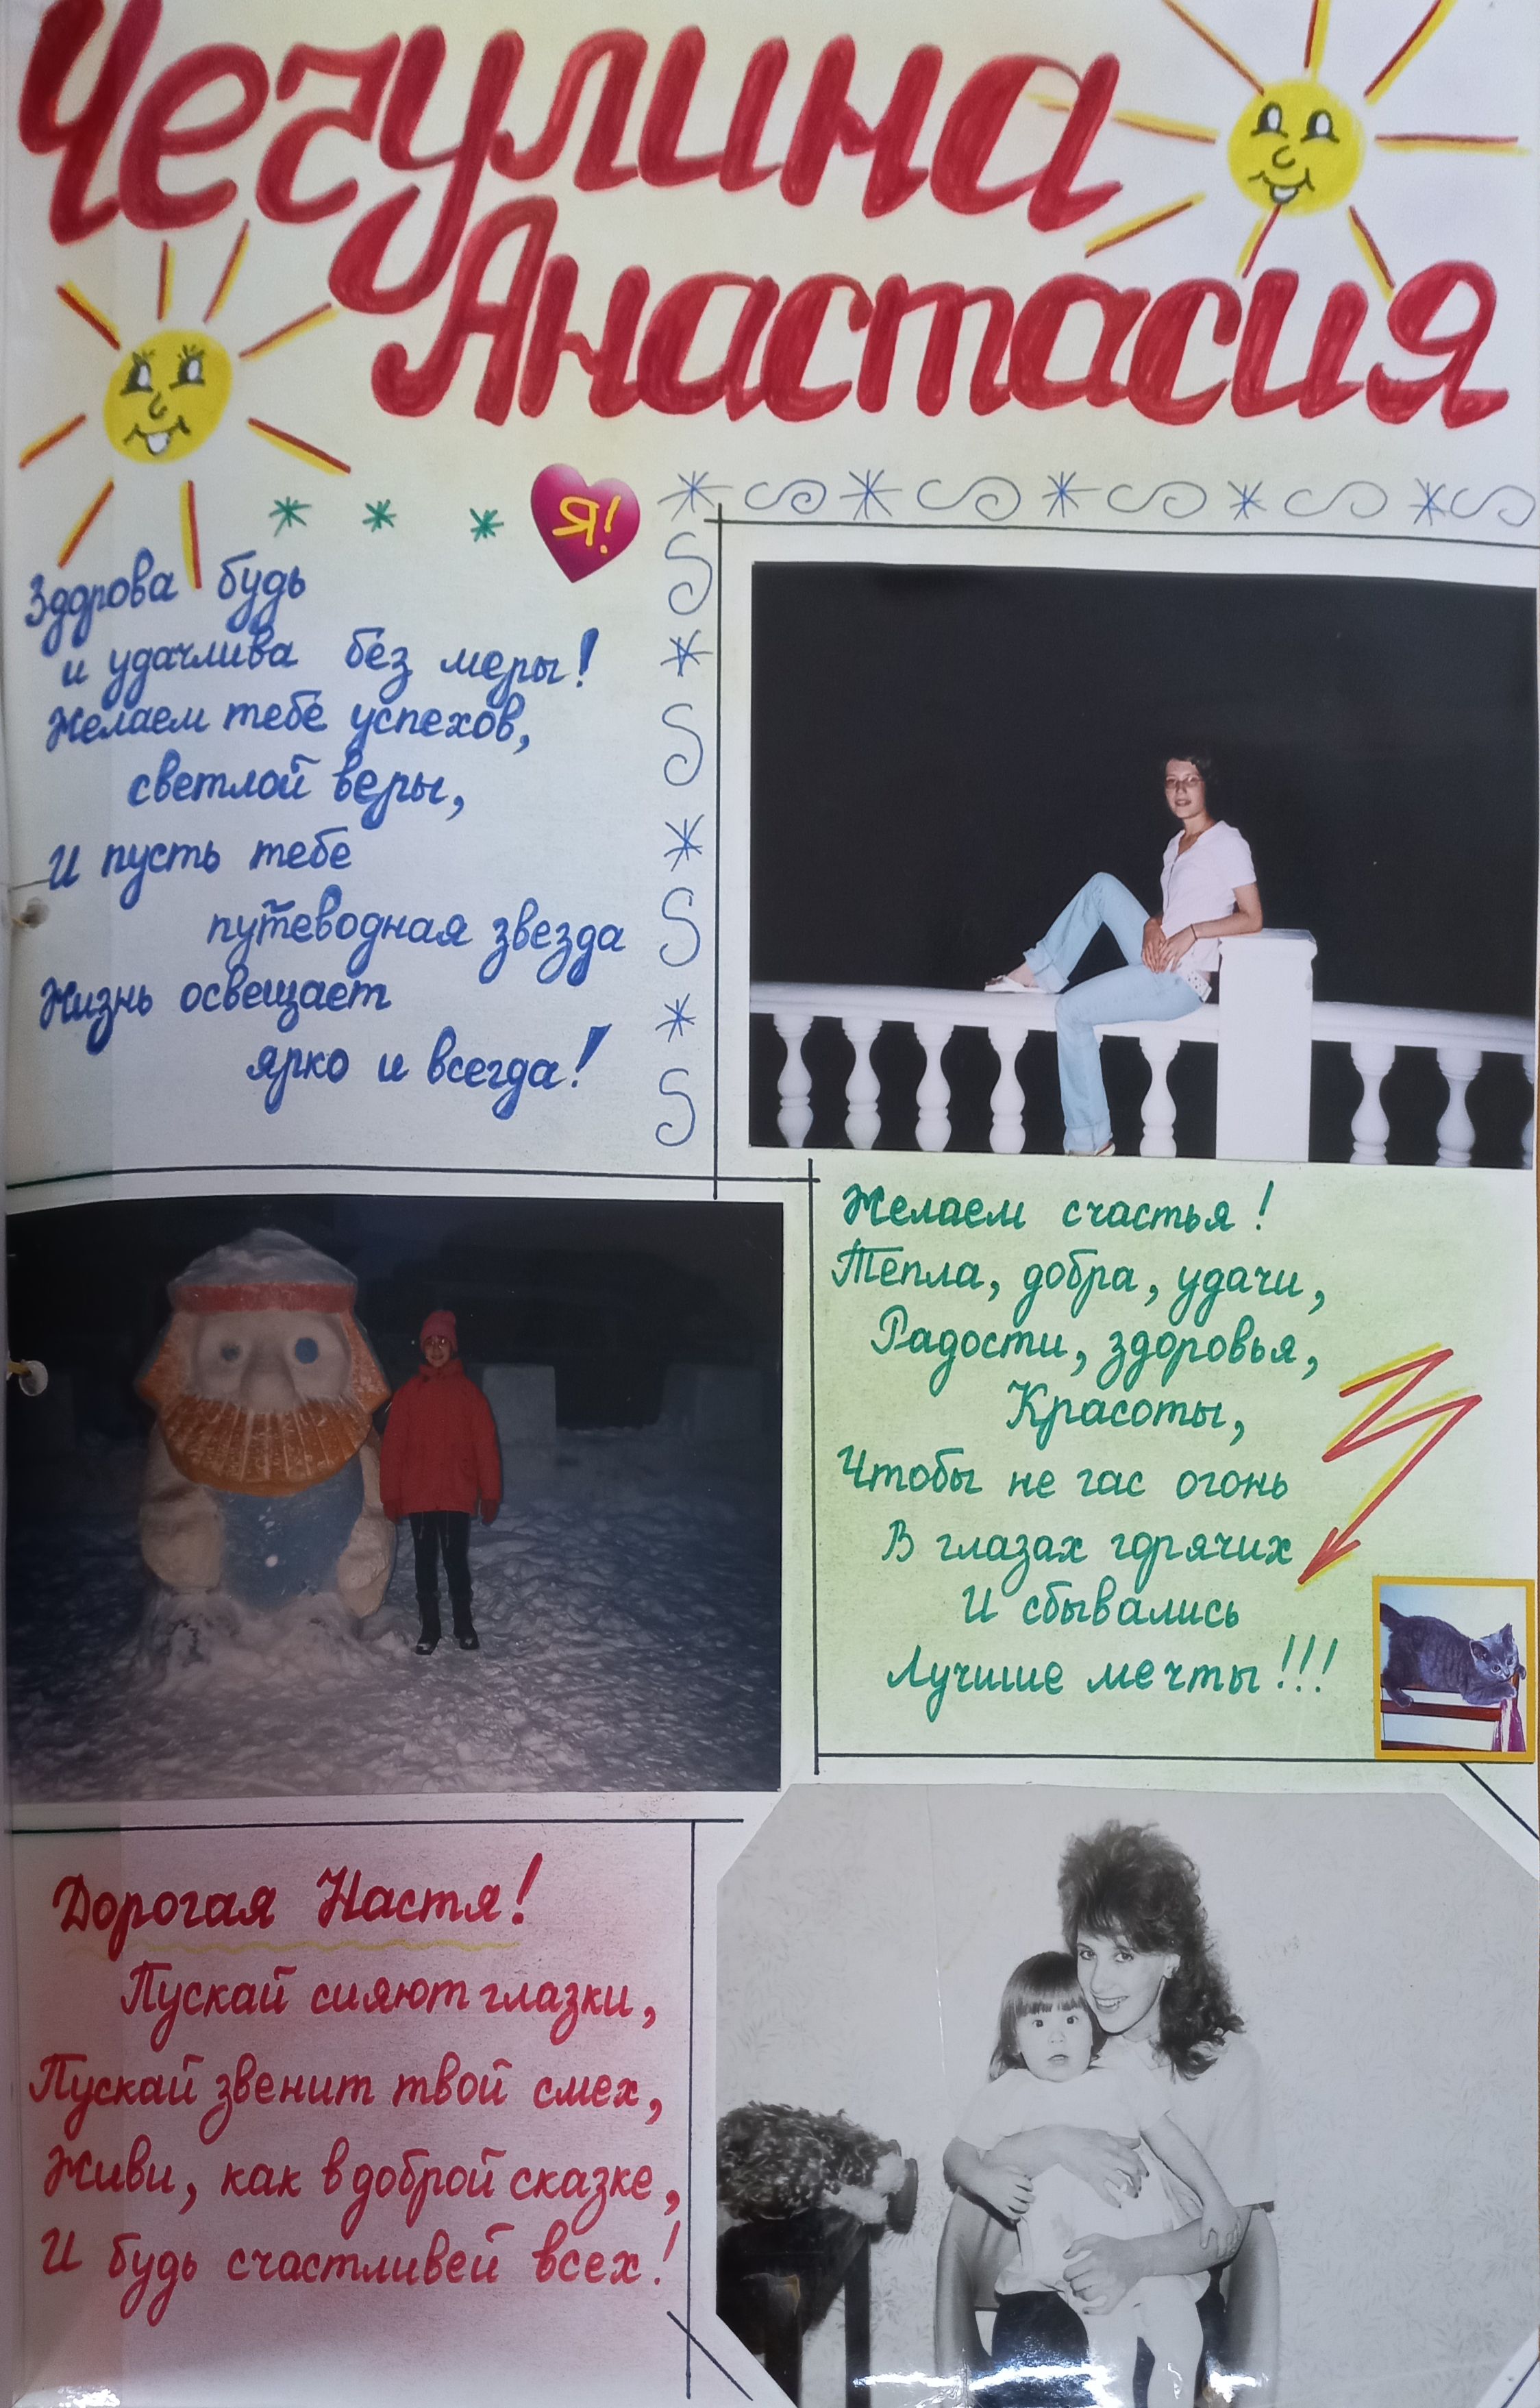 Чегулина
Анастасия
Я!
Здорова будь
и удачлива без меры!
Желаем тебе успехов,
светлой веры,
И пусть тебе
путеводная звезда
Жизнь освещает
ярко и всегда!
Желаем счастья!
Тепла, добра, удачи,
Радости, здоровья,
Красоты,
Чтобы не гас огонь
В глазах горячих
И сбывались
Лучшие мечты!!!
Дорогая Настя!
Пускай сияют глазки,
Пускай звенит твой смех,
Живи, как в доброй сказке,
И будь счастливей всех!